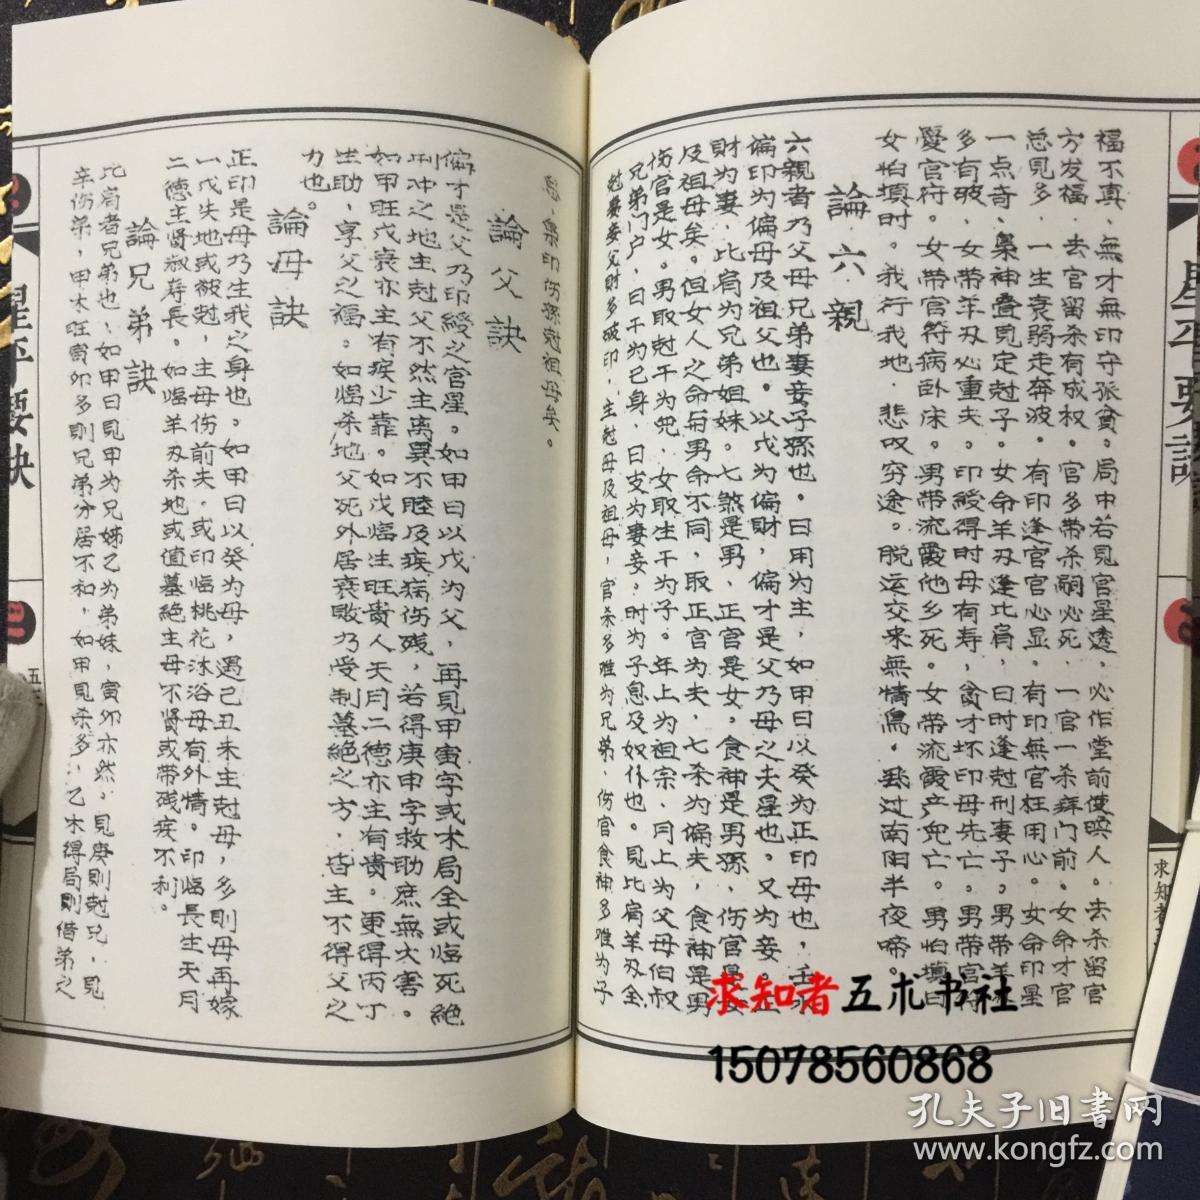 福不真，無才無印守張貧。局中若見官星透，必作堂前使喚人。去杀留官
方发福，去官留杀有成权。官多带杀嗣必死，一官一杀病门前。女命才官
忌見多，一生衰弱走奔波。有印逢官官必显，有印無官枉用心。女命印星
一点奇，梟神疊見定尅子。女命羊刃逢比肩，日时逢尅刑妻子。男带羊刃
多有破，女带羊刃必重夫。印綬得时母有寿，貪才坏印母先亡。男带官符
憂官符。女带官符病卧床。男带流霞他乡死。女带流霞产児亡。男怕填日
女怕填时。我行我地，悲叹穷途。脱运交来無情馬。
論六親
六親者乃父母兄弟妻妾子孫也。日用为主，如甲日以癸为正印母也，壬水
偏印为偏母及祖父也。以戊为偏財，偏才是父乃母之夫星也。又为妾。正
財为妻，比肩为兄弟姐妹。七煞是男，正官是女。食神是男孫，伤官是女
及祖母矣。但女人之命与男命不同，取正官为夫，七杀为偏夫，食神是男
伤官是女。男取尅干为児，女取生干为子。年上为祖宗，月上为父母伯叔
兄弟门户，日干为己身，日支为妻妾，时为子息及奴仆也。見比肩羊刃全
尅妻妾父財多破印，主尅母及祖母，官杀多难为兄弟，伤官食神多难为子
息，梟印伤孫尅祖母矣。
論父訣
偏才是父乃印綬之官星。如甲日以戊为父，再見甲寅字或木局全或臨死絶
刑冲之地主尅父不然主离異不睦及疾病伤残，若得庚申字救助庶無大害。
如甲旺戊衰亦主有疾少靠。如戊臨生旺貴人天月二德亦主有貴。更得丙丁
生助，享父之福。如臨杀地父死外居衰敗乃受制墓絶之方，皆主不得父之
力也。
論母訣
正印是母乃生我之身也。如甲日以癸为母，遇己丑未主尅母，多則母再嫁
一戊失地或被尅，主母伤前夫。或印臨桃花沐浴母有外情。印臨長生天月
二德主賢淑寿長。如臨羊刃杀地或值墓絶主母不賢或带残疾不利。
論兄弟訣
比肩者兄弟也，如甲日見甲为兄姊乙为弟妹，寅卯亦然。見庚則尅兄，見
辛伤弟，甲木旺寅卯多則兄弟分居不和，如甲見杀多，乙木得局則借弟之
星平要訣
求知者五术书社
15078560868
孔夫子旧書网
www.kongfz.com